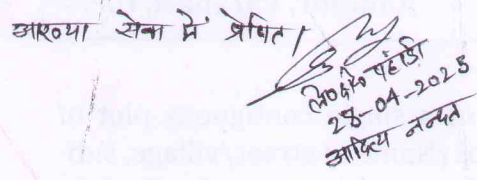 आख्या सेवा में प्रेषित।
ले०
28-04-2025
आदित्य नन्दन